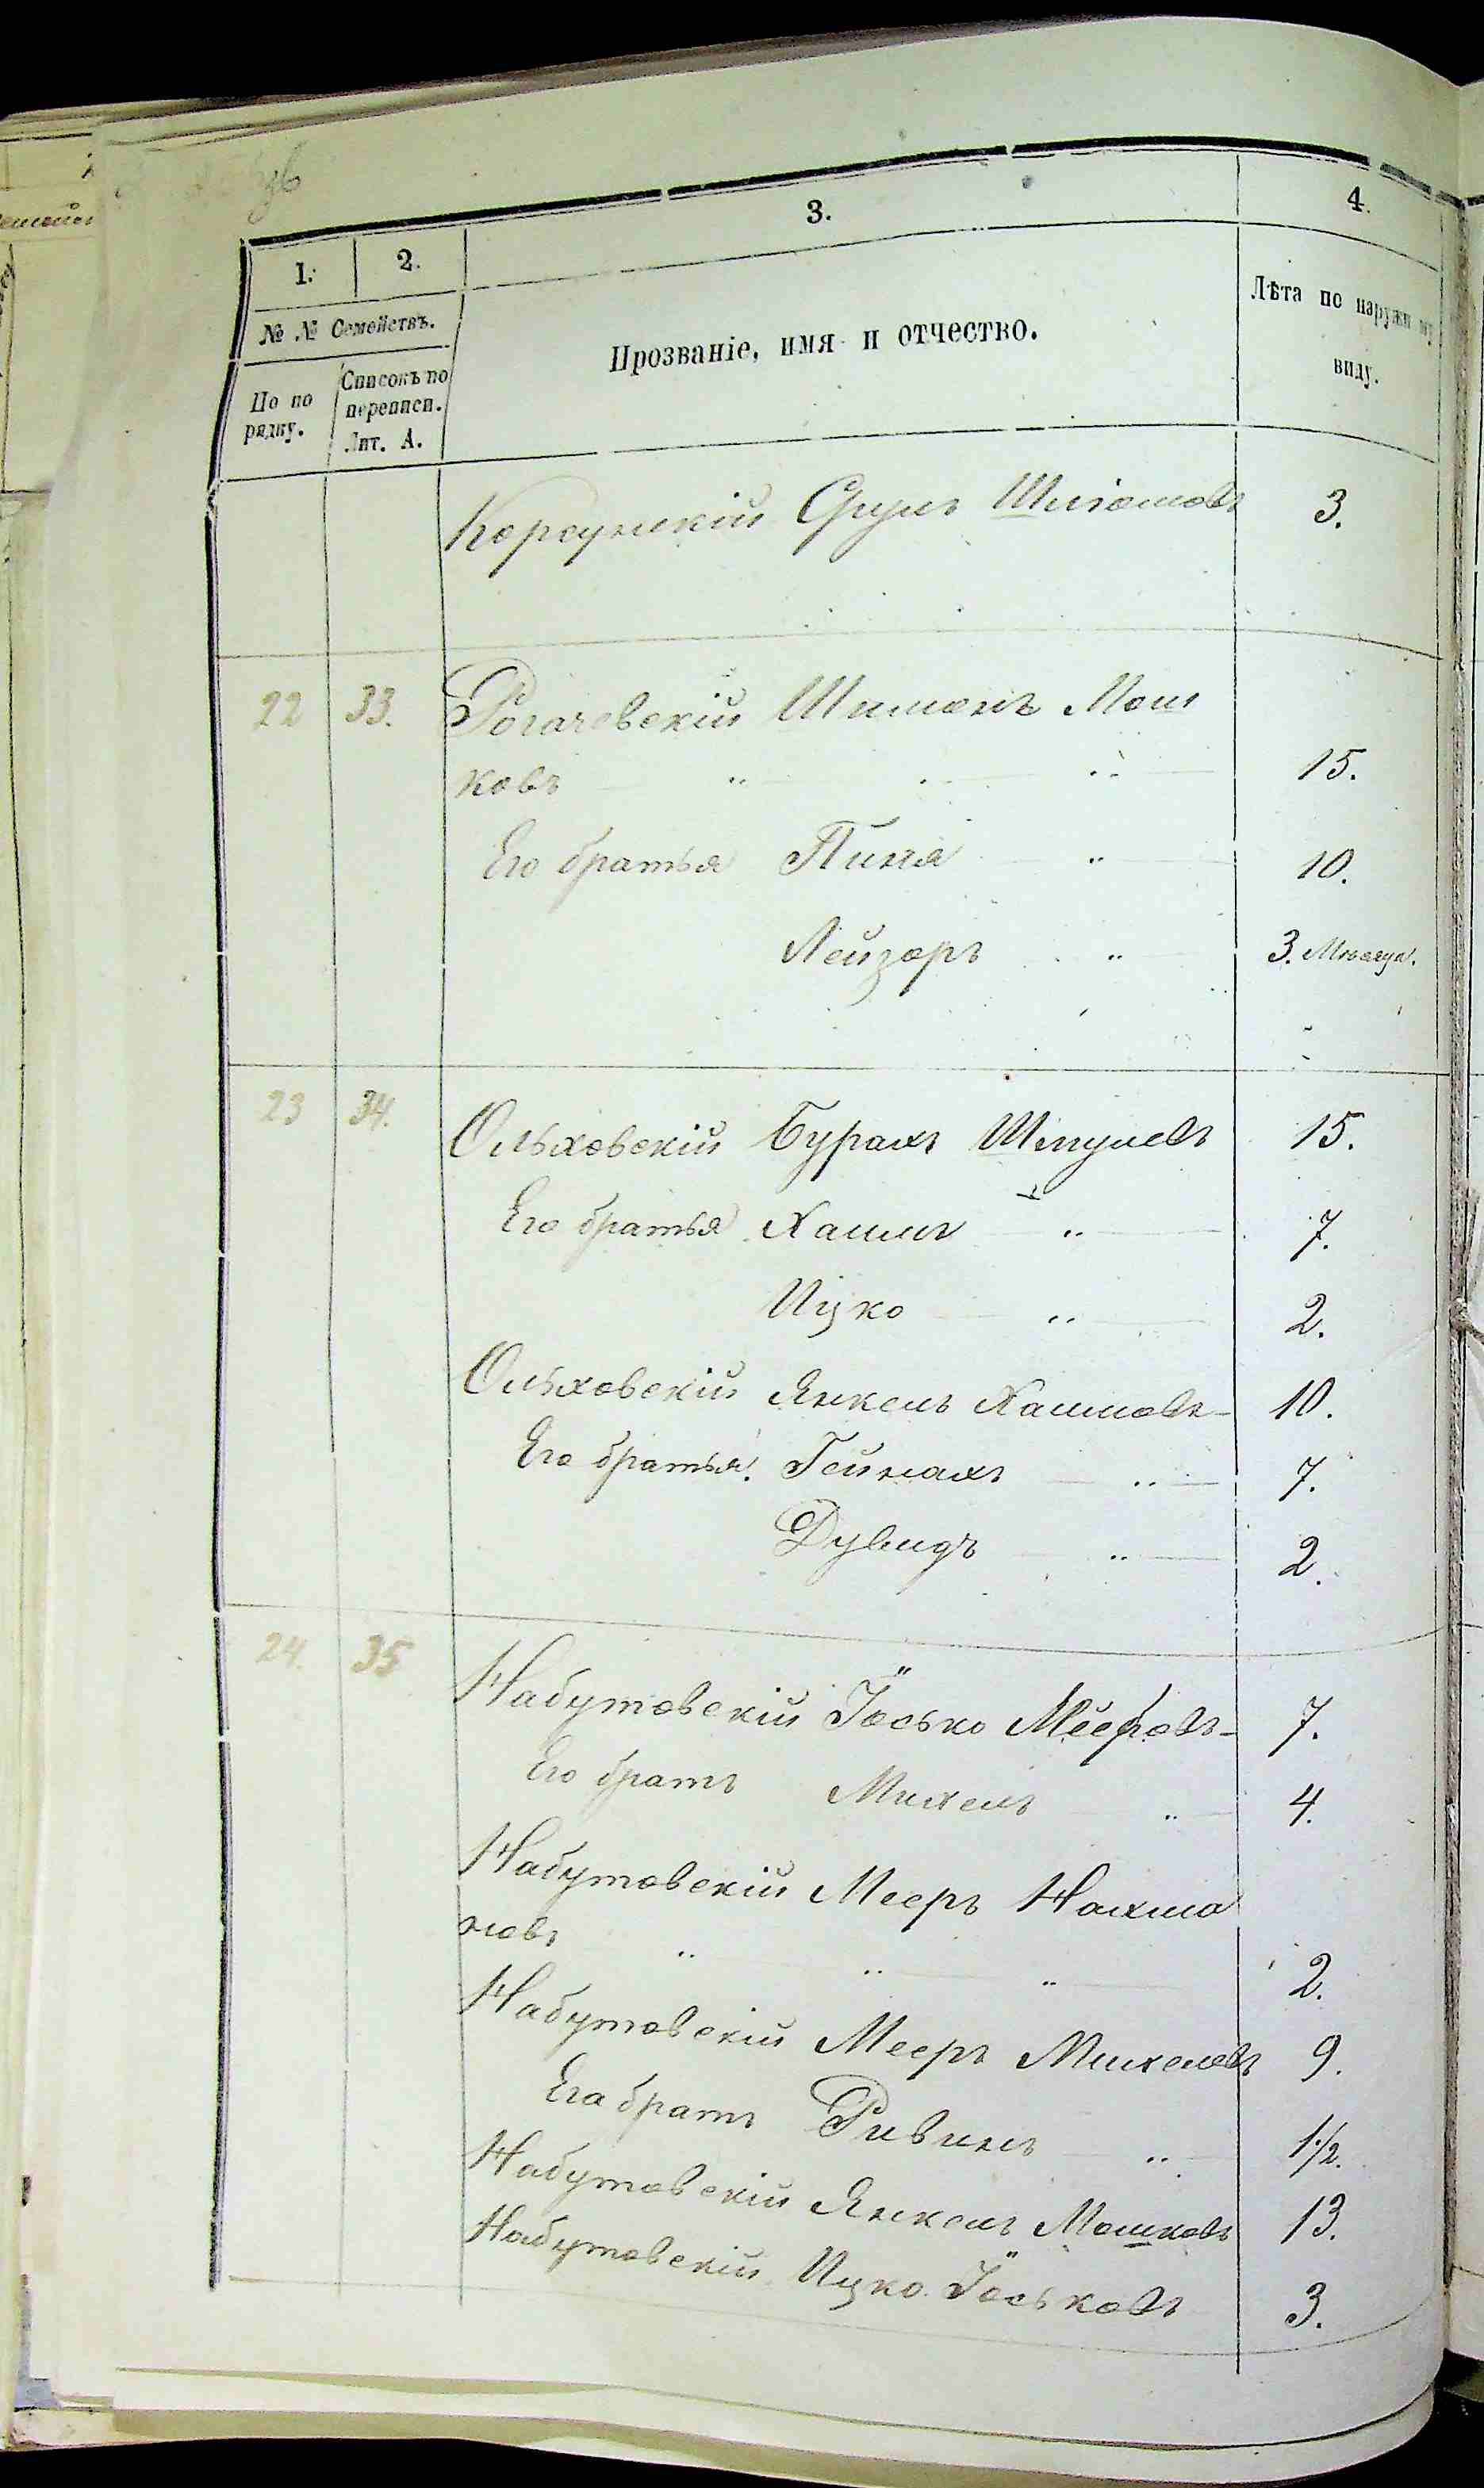 1. 2. 3. 4.
№ № Семействъ.
По по рядку.
Списокъ по переписи. Лит. А.
Прозваніе, имя и отчество.
Лѣта по наружн му виду.
Корсунскій Сруль 3.
22 33. Рогачевскій Шимонъ Мош
ковъ " " " 15.
Его братья Пиня " 10.
Лейзоръ " 3. Мѣсяца.
23 34. Ольховскій Бурахъ Шмулевъ 15.
Его братья Хаимъ " 7.
Ицко " 2.
Ольховскій Янкель Хаимовъ 10.
Его братья: Гейнахъ " 7.
Дувидъ " 2.
24. 35 Набутовскій Іосько Мееровъ 7.
Его братъ Михель " 4.
Набутовскій Мееръ Нахма
новъ " " " 2.
Набутовскій Мееръ Михелевъ 9.
Его братъ Ривинъ " 1/2.
Набутовскій Янкель Мошковъ 13.
Набутовскій Ицко Іоськовъ 3.